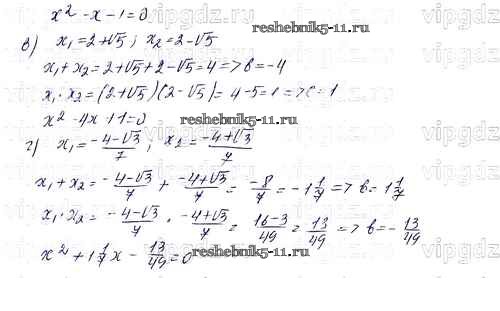 x² - x - 1 = 0
reshebnik5-11.ru
в) x₁ = 2+√5 ; x₂ = 2-√5
x₁ + x₂ = 2+√5 + 2-√5 = 4 => b = -4
x₁ · x₂ = (2+√5)(2-√5) = 4-5 = 1 => c = 1
x² - 4x + 1 = 0
reshebnik5-11.ru
г) x₁ = -4-√3/7 ; x₂ = -4+√3/7
x₁ + x₂ = -4-√3/7 + -4+√3/7 = -8/7 = -1 1/7 => b = 1 1/7
x₁ · x₂ = -4-√3/7 · -4+√3/7 = 16-3/49 = 13/49 => b = -13/49
x² + 1 1/7 x - 13/49 = 0
reshebnik5-11.ru
vipgdz.ru